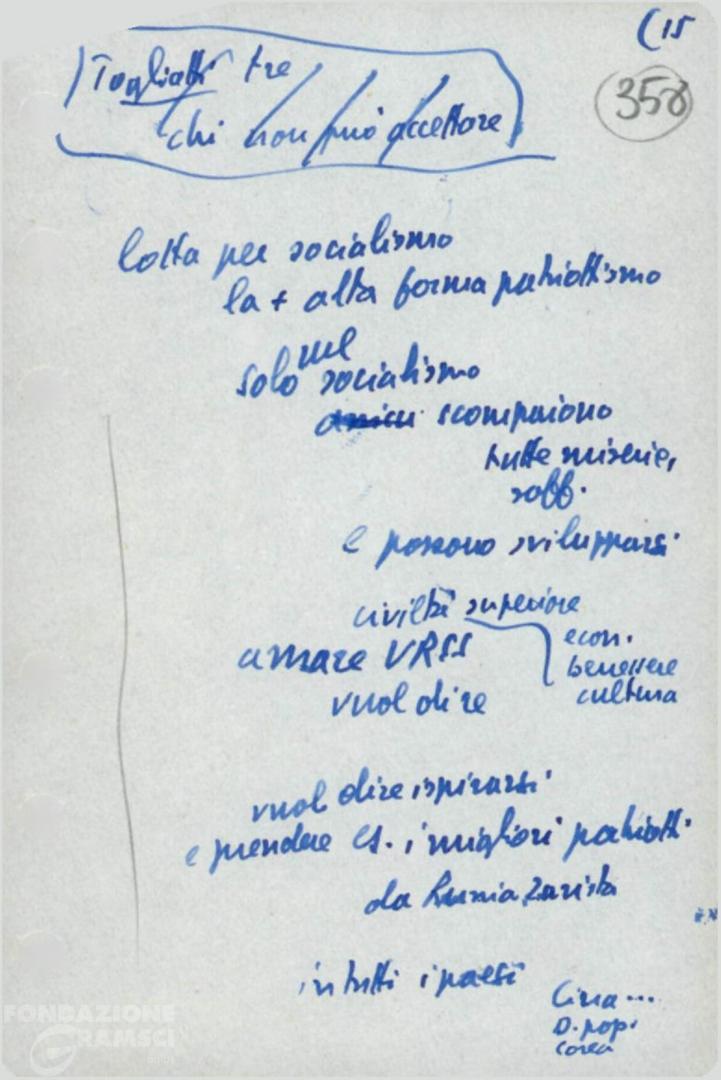 (15
358
Togliatti tre
chi non può accettare
lotta per socialismo
la + alta forma patriottismo
nel
solo socialismo
scompaiono
tutte miserie,
soff.
e possono svilupparsi
civiltà superiore
econ.
amare URSS
benessere
vuol dire
cultura
vuol dire ispirarsi
e prendere es. i migliori patriotti
da Russia zarista
in tutti i paesi
Cina ...
D. pop.
Corea
FONDAZIONE
GRAMSCI